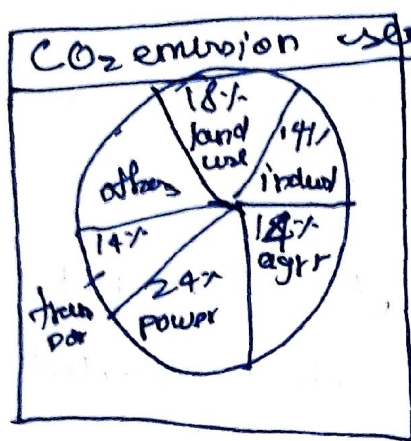 CO2 emission user
18%
land
use
14%
indust
14%
agrr
24%
power
14%
tran
por
others